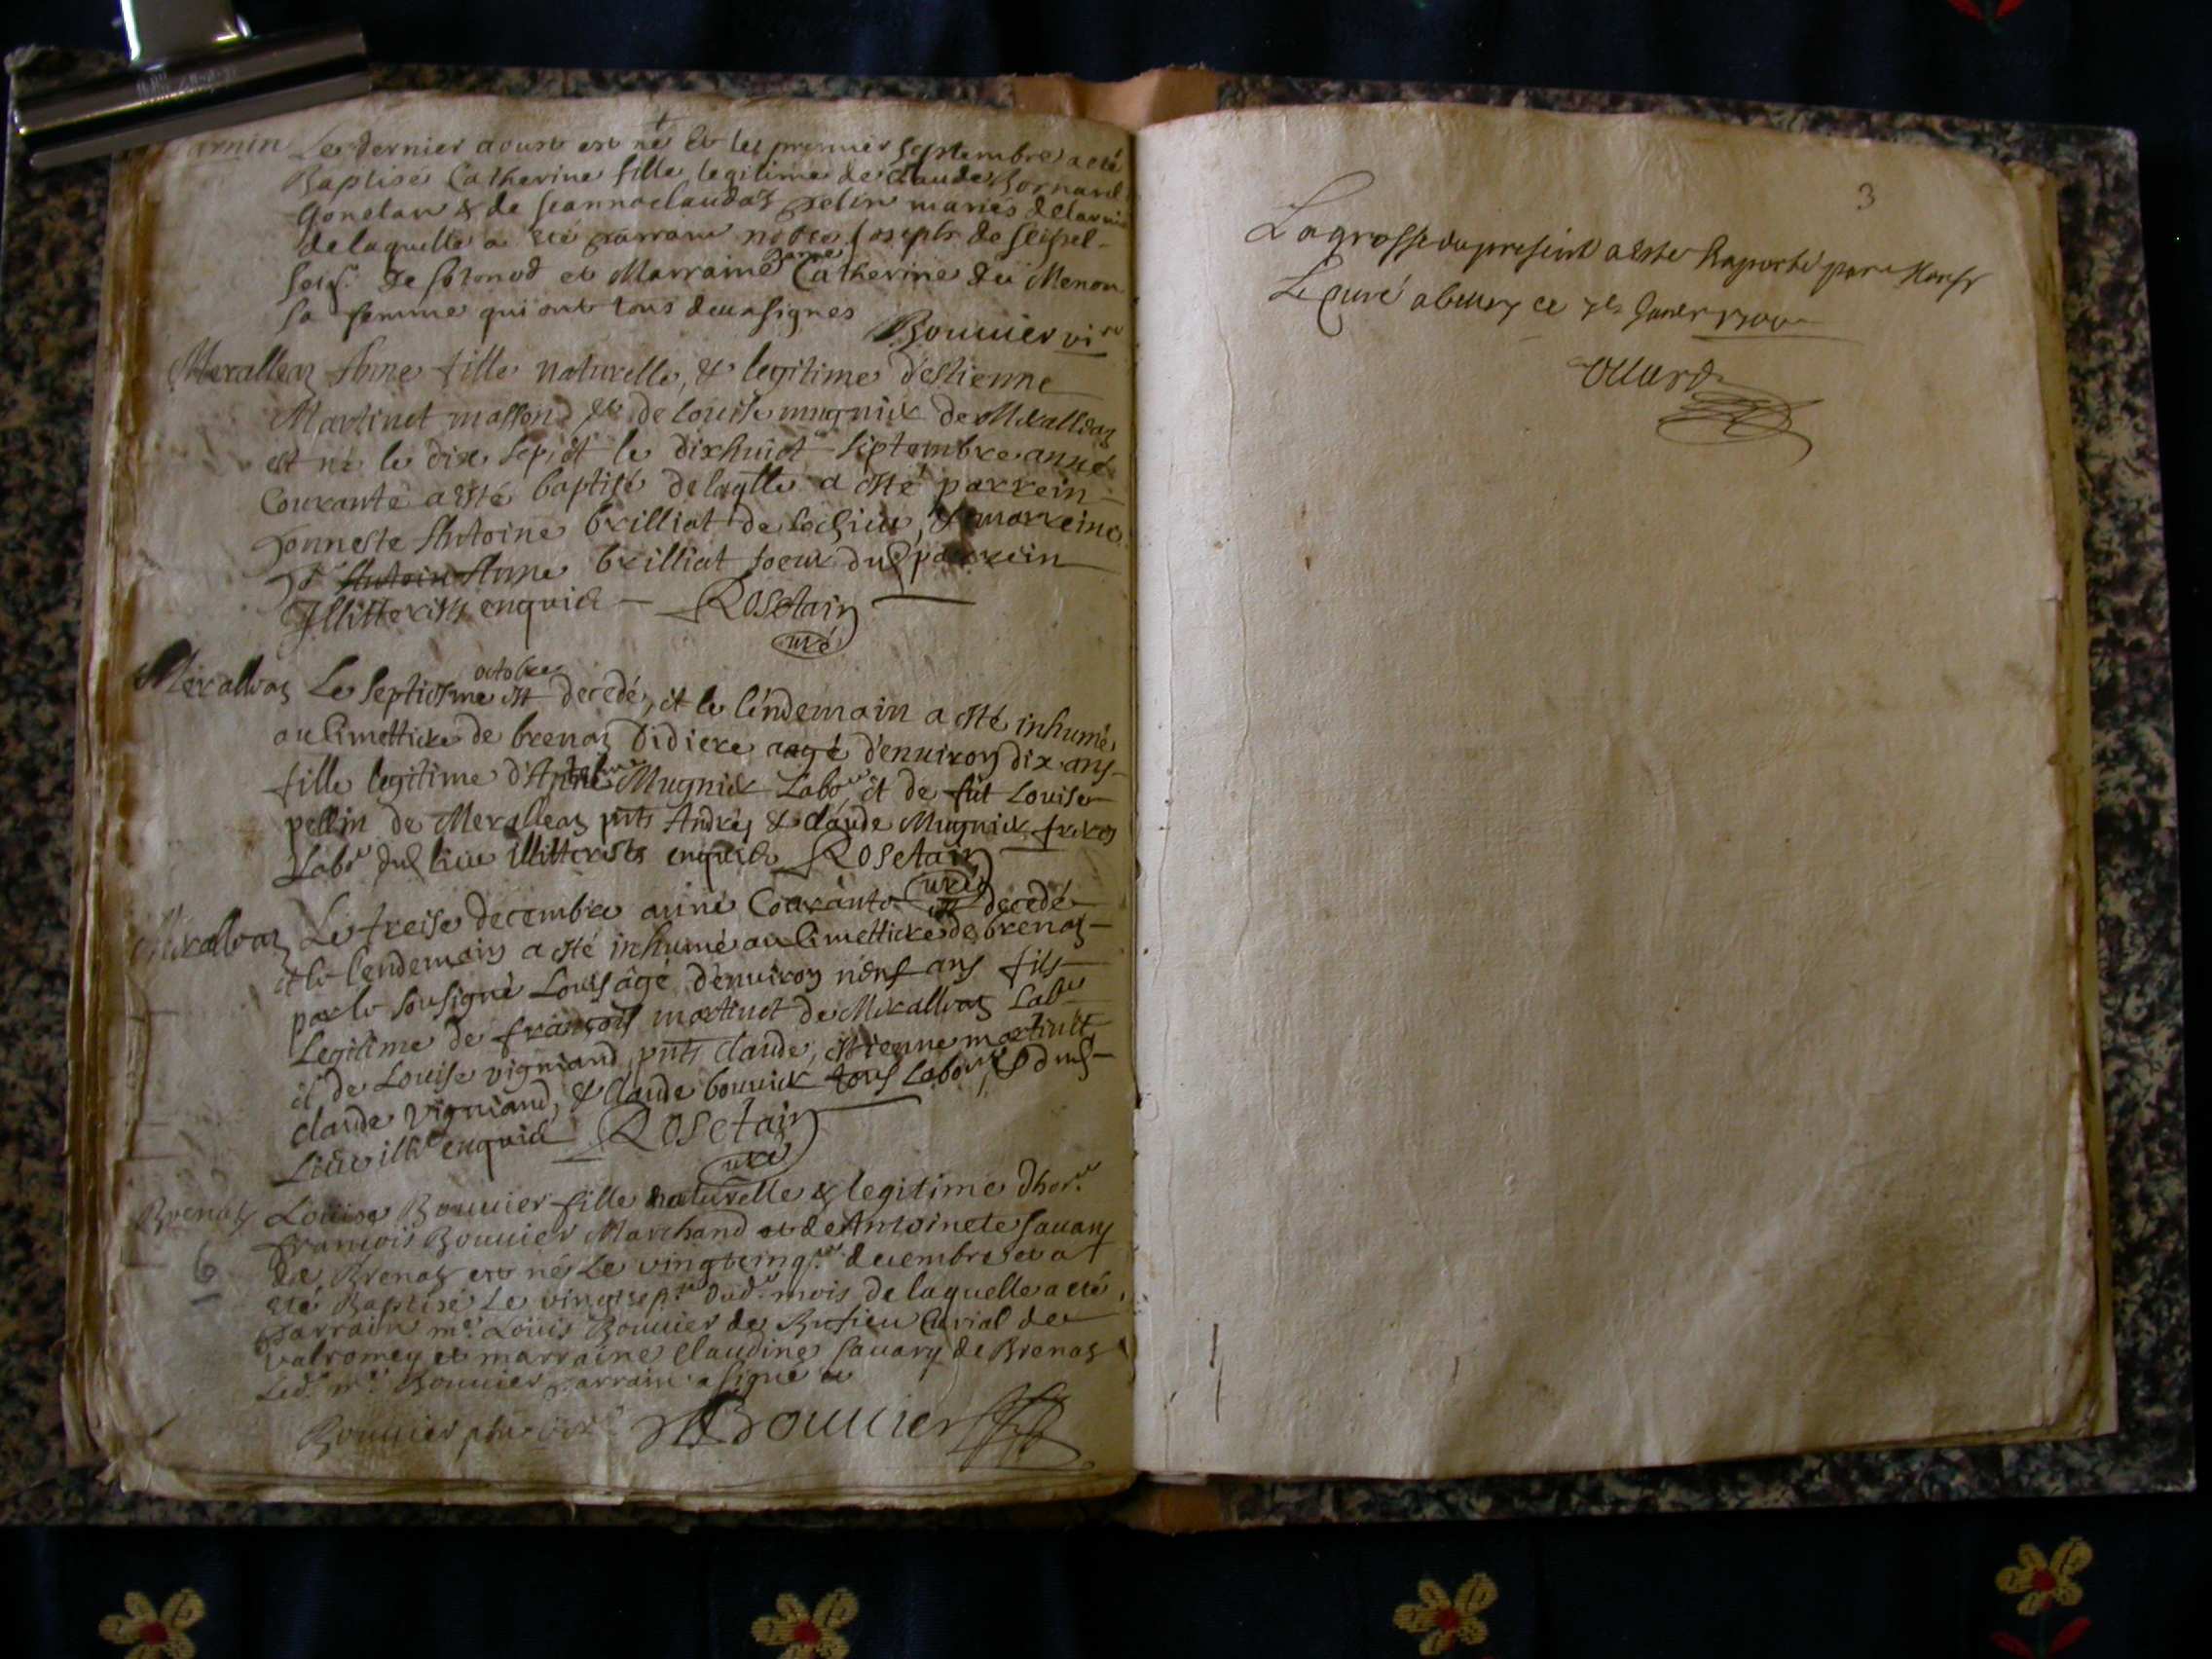 Le dernier aoust est né Et le premier septembre a eté
Baptisé Catherine fille legitime de Claude Bornard
Gonelaw & de Jeanneclauda pelin mariés
de laquelle a eté parrain noble Joseph de Seissel
seig.r de sotonod et Marraine dame Catherine de Menon
sa femme qui ont tous deux signes
Bouuier vi.re
Meralleaz Anne fille naturelle, & legitime d'Estienne
Martinet masson & de Louise mugnier de Meralleaz
est né le dix sept, et le dixhuict septembre année
Courante a esté baptisé de laqlle a esté parrein
honneste Antoine brilliat de lochieu, & marreine
h.te Antoin Anne brilliat soeur dud parrein
Illitterists enquis Rosetain
curé
Meralleaz Le septiesme octobre est decedé, et le lendemain a esté inhumé
au Cimettiere de brenaz Didiere aagé d'enuiron dix ans
fille legitime d'Anthelme Mugnier Labo.r et de fut Louise
pellin de Meralleaz pnts André, & claude Mugnier freres
Labo.r dud lieu illitterists enquis Rosetain
curé
Meralleaz Le treise decembre anné Courante est decedé
et le lendemain a esté inhumé au Cimettiere de brenaz
par le sousigné Louis âgé d'enuiron neuf ans fils
Legitime de françois martinet de Meralleaz Labo.r
et de Louise vigniand, pnts claude, estienne martinet
claude vigniand, & Claude bouuier tous labo.rs dud
Lieu illit enquis Rosetain
curé
Brenaz Louise Bouuier fille naturelle & legitime d'hon.te
françois Bouuier Marchand et de Antoinete sauary
de Brenaz est né le vingtcinq.me decembre et a
eté Baptisé Le vingtsep.me dud. mois de laquelle a eté
parrain m.e Louis Bouuier de Rufieu Curial de
valromey et marraine Claudine sauary de Brenaz
Led. m.e Bouuier parrain a signé
6
Bouuier ptre vic.re Bouuier
3
La grosse du present a este Raporté par Monsr
Le curé a belley ce Januier 1700